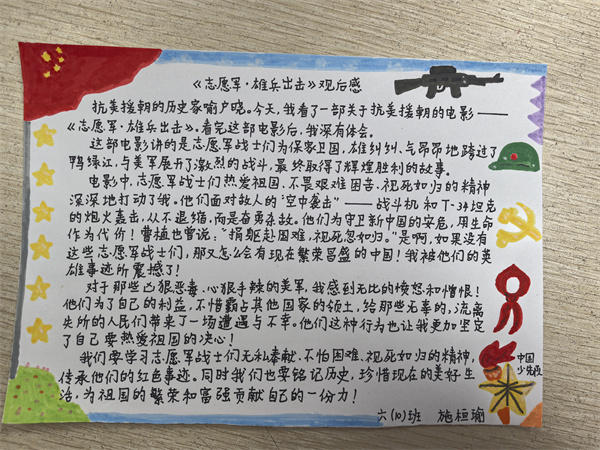 《志愿军·雄兵出击》观后感
抗美援朝的历史家喻户晓。今天，我看了一部关于抗美援朝的电影——
《志愿军·雄兵出击》。看完这部电影后，我深有体会。
这部电影讲的是志愿军战士们为保家卫国，雄纠纠、气昂昂地跨过了
鸭绿江，与美军展开了激烈的战斗，最终取得了辉煌胜利的故事。
电影中，志愿军战士们热爱祖国，不畏艰难困苦、视死如归的精神
深深地打动了我。他们面对敌人的“空中袭击”——战斗机和T-34坦克
的炮火轰击，从不退缩，而是奋勇杀敌。他们为守卫新中国的安危，用生命
作为代价！曹植也曾说：“捐躯赴国难，视死忽如归。”是啊，如果没有
这些志愿军战士们，那又怎么会有现在繁荣昌盛的中国！我被他们的英
雄事迹所震撼了！
对于那些凶狠恶毒、心狠手辣的美军，我感到无比的愤怒和憎恨！
他们为了自己的利益，不惜霸占其他国家的领土，给那些无辜的，流离
失所的人民们带来了一场遭遇与不幸。他们这种行为也让我更加坚定
了自己要热爱祖国的决心！
我们要学习志愿军战士们无私奉献、不怕困难、视死如归的精神，
传承他们的红色事迹。同时我们也要铭记历史，珍惜现在的美好生
活，为祖国的繁荣和富强贡献自己的一份力！
中国
少先队
六(10)班 施桓瑜